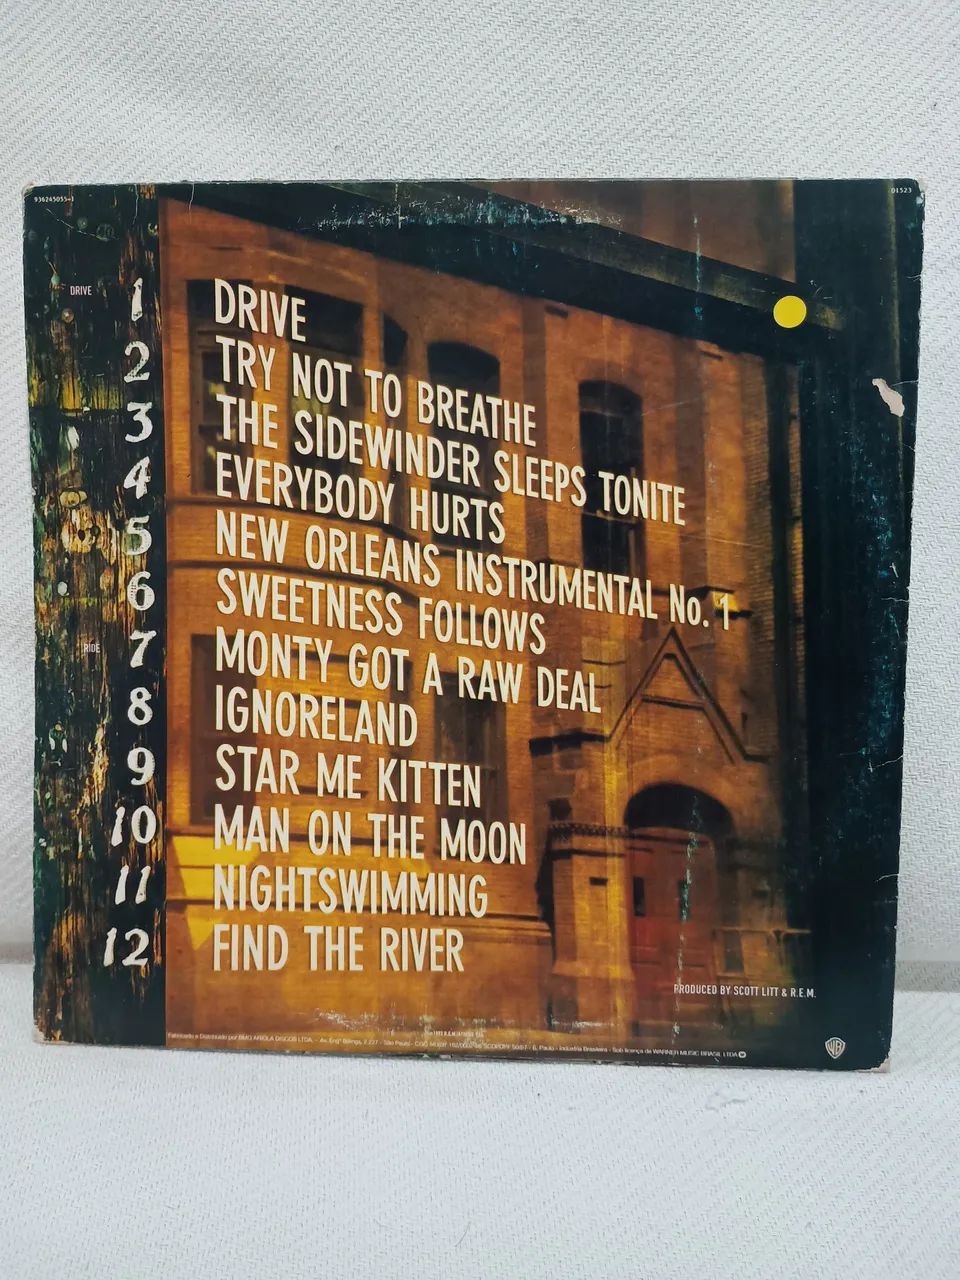 936245055-1
01523
DRIVE
1 DRIVE
2 TRY NOT TO BREATHE
3 THE SIDEWINDER SLEEPS TONITE
4 EVERYBODY HURTS
5 NEW ORLEANS INSTRUMENTAL No. 1
6 SWEETNESS FOLLOWS
RIDE
7 MONTY GOT A RAW DEAL
8 IGNORELAND
9 STAR ME KITTEN
10 MAN ON THE MOON
11 NIGHTSWIMMING
12 FIND THE RIVER
PRODUCED BY SCOTT LITT & R.E.M.
Fabricado e Distribuído por BMG ARIOLA DISCOS LTDA. - Av. Engº Billings, 2.227 - São Paulo - S. Paulo - Indústria Brasileira - Sob licença de WARNER MUSIC BRASIL LTDA
WB